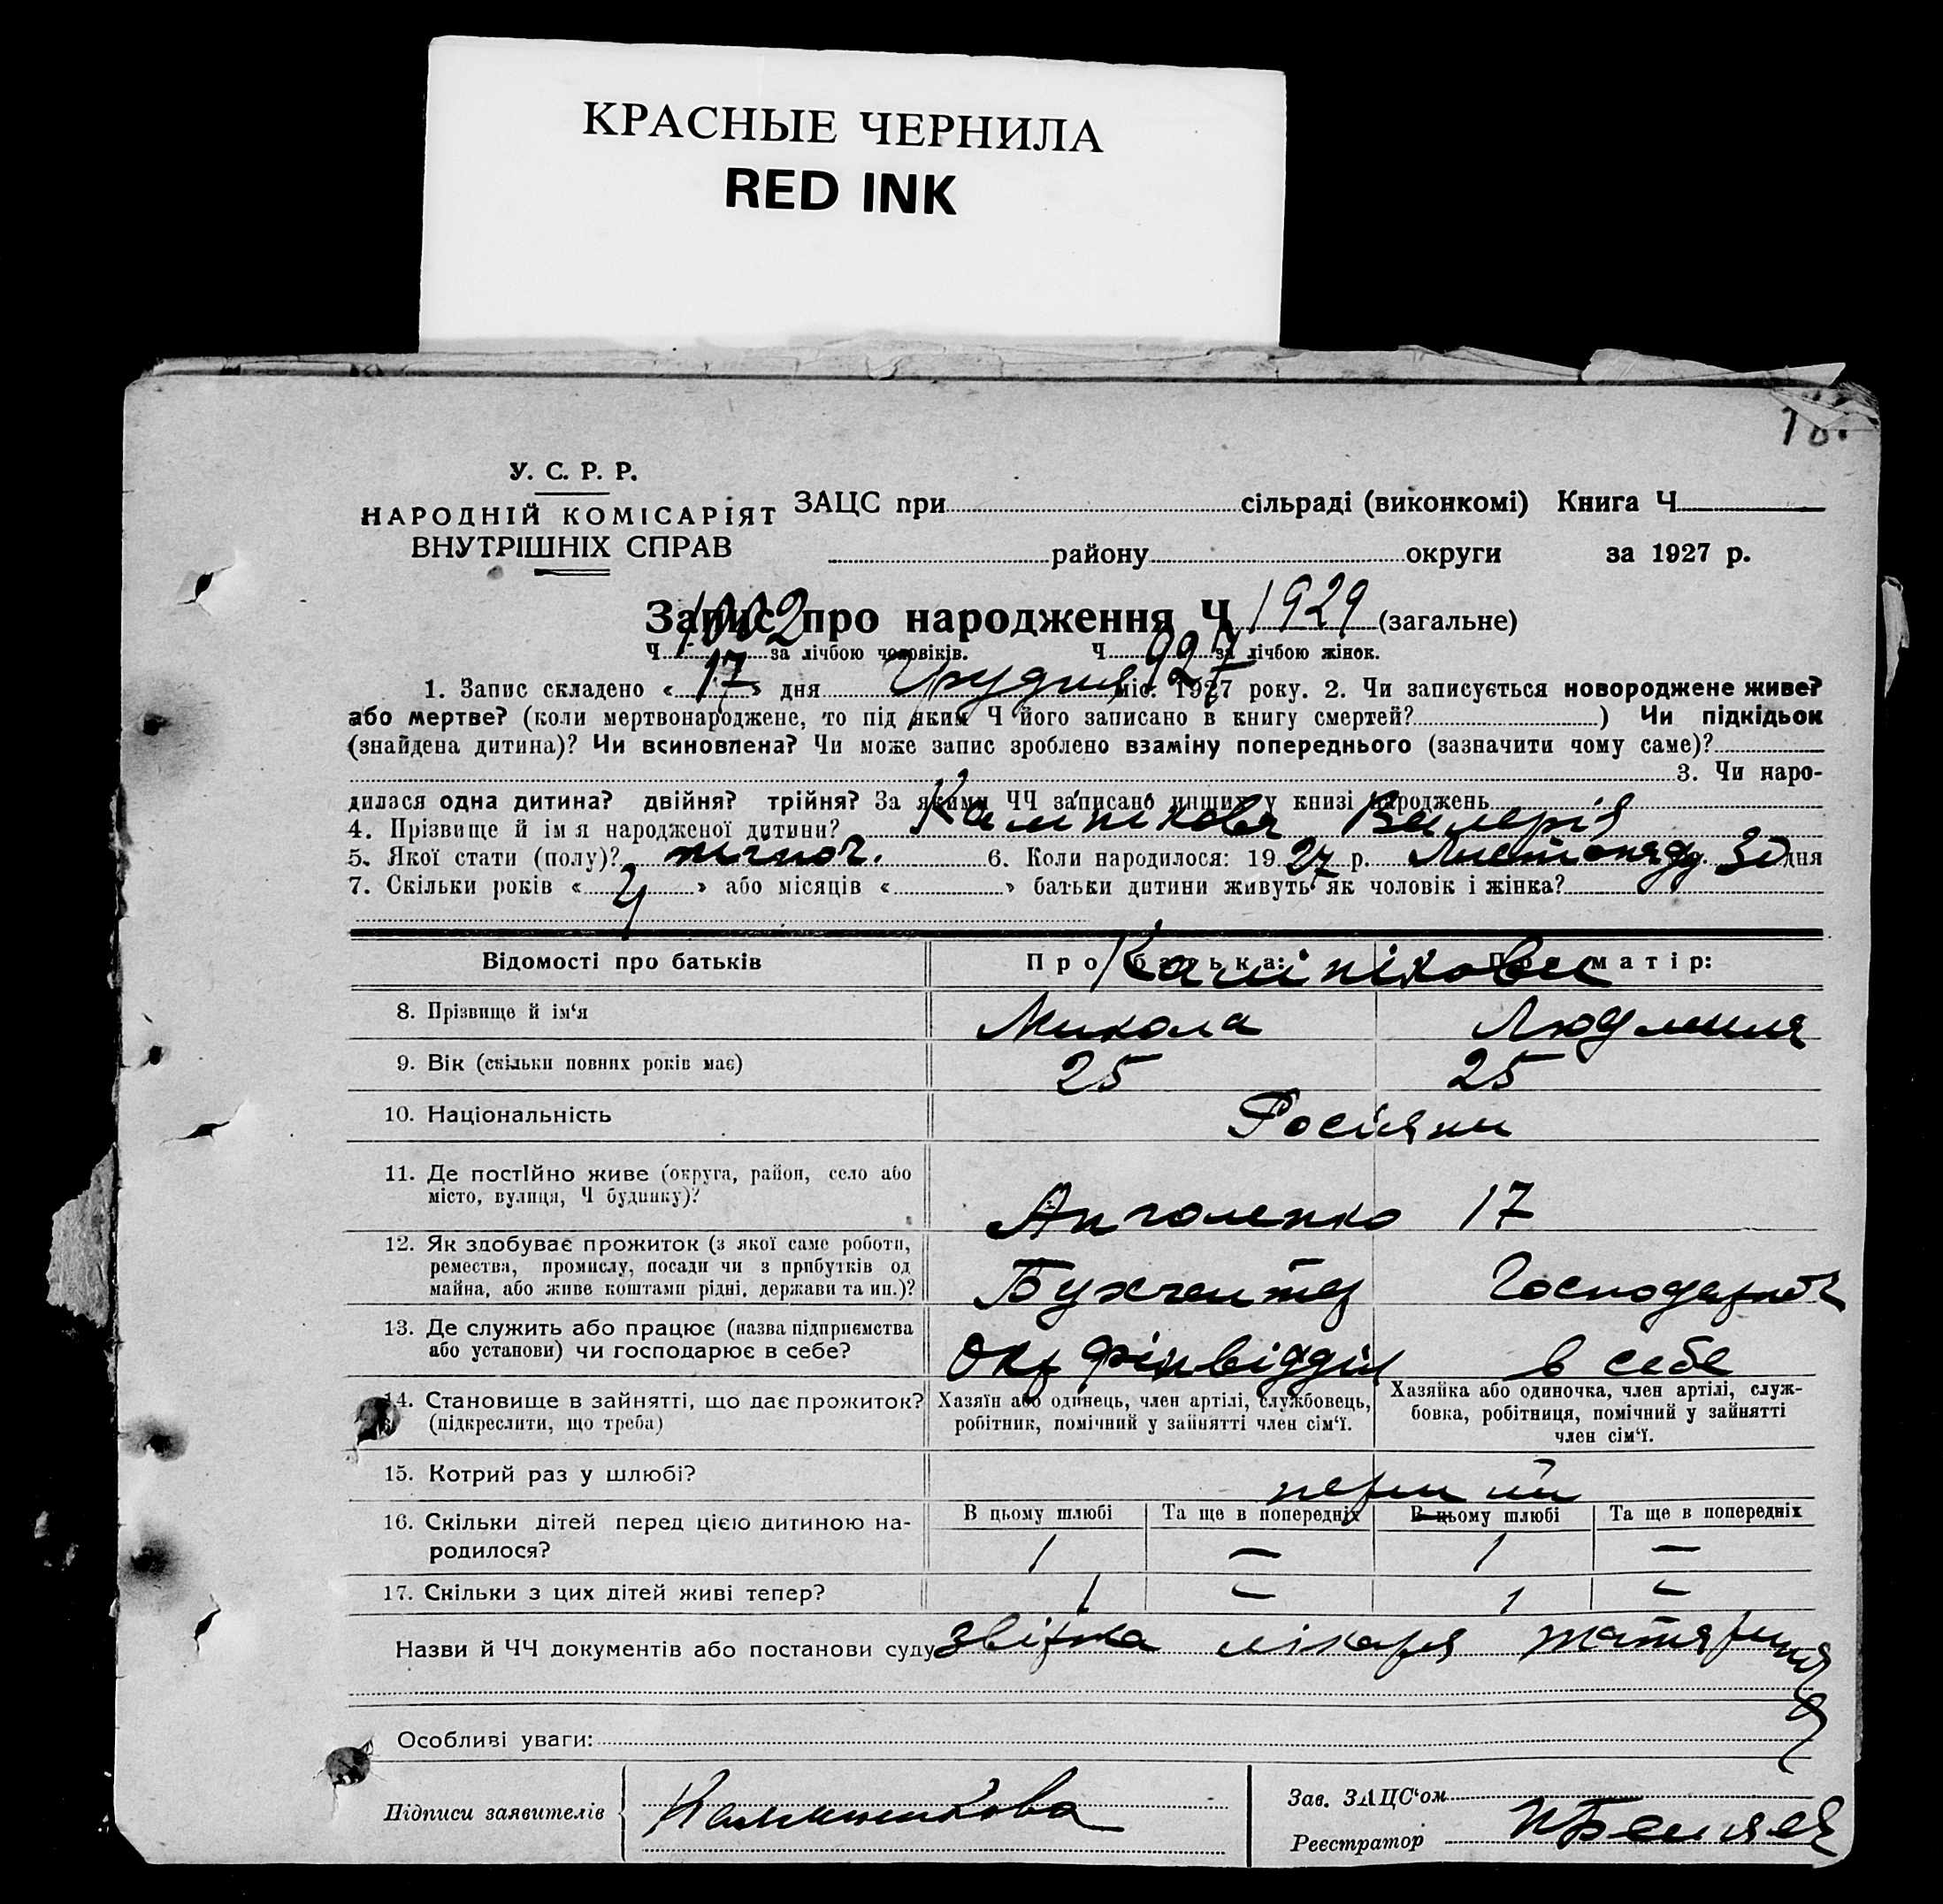 КРАСНЫЕ ЧЕРНИЛА
RED INK
У. С. Р. Р.
НАРОДНІЙ КОМІСАРІЯТ
ВНУТРІШНІХ СПРАВ
ЗАЦС при сільраді (виконкомі) Книга Ч
району округи за 1927 р.
Запис про народження Ч 1929 (загальне)
Ч 1002 за лічбою чоловіків. Ч 927 за лічбою жінок.
1. Запис складено « 17 » дня Грудня міс. 1927 року. 2. Чи записується новороджене живе?
або мертве? (коли мертвонароджене, то під яким Ч його записано в книгу смертей? ) Чи підкідьок
(знайдена дитина)? Чи всиновлена? Чи може запис зроблено взаміну попереднього (зазначити чому саме)?
3. Чи наро-
дилася одна дитина? двійня? трійня? За якими ЧЧ записано инших у книзі народжень
4. Прізвище й ім я народженої дитини? Калінікова Валерія
5. Якої стати (полу)? жіноч. 6. Коли народилося: 1927 р. Листопаду 30 дня
7. Скільки років « 4 » або місяців « » батьки дитини живуть як чоловік і жінка?
Відомості про батьків Про батька: Про матір:
Калінікови
8. Прізвище й ім‘я Микола Людмила
9. Вік (скільки повних років має) 25 25
10. Національність Росіяни
11. Де постійно живе (округа, район, село або
місто, вулиця, Ч будинку)? 17
12. Як здобуває прожиток (з якої саме роботи,
ремества, промислу, посади чи з прибутків од
майна, або живе коштами рідні, держави та ин.)? Бухгалтер Господарноч
13. Де служить або працює (назва підприємства
або установи) чи господарює в себе? Окр фінвідділ в себе
14. Становище в зайнятті, що дає прожиток?
(підкреслити, що треба)
Хазяїн або одинець, член артілі, службовець,
робітник, помічний у зайнятті член сім‘ї.
Хазяйка або одиночка, член артілі, служ-
бовка, робітниця, помічний у зайнятті
член сім‘ї.
15. Котрий раз у шлюбі? перший
16. Скільки дітей перед цією дитиною на-
родилося?
В цьому шлюбі Та ще в попередніх В цьому шлюбі Та ще в попередніх
1 — 1 —
17. Скільки з цих дітей живі тепер? 1 — 1 —
Назви й ЧЧ документів або постанови суду звірка лікаря
Особливі уваги:
Підписи заявителів Калинникова
Зав. ЗАЦС‘ом
Реєстратор